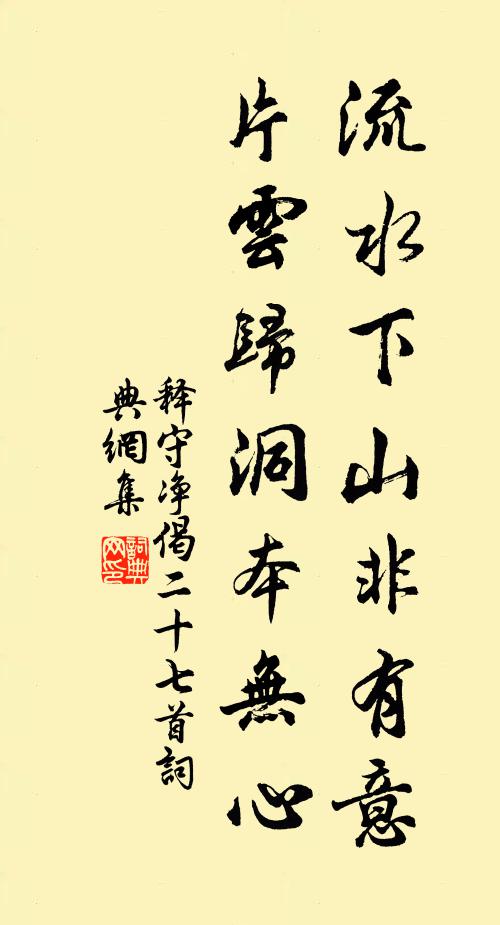 流水下山非有意
片雲歸洞本無心
释守净偈二十七首詞
典網集
詞典
网印